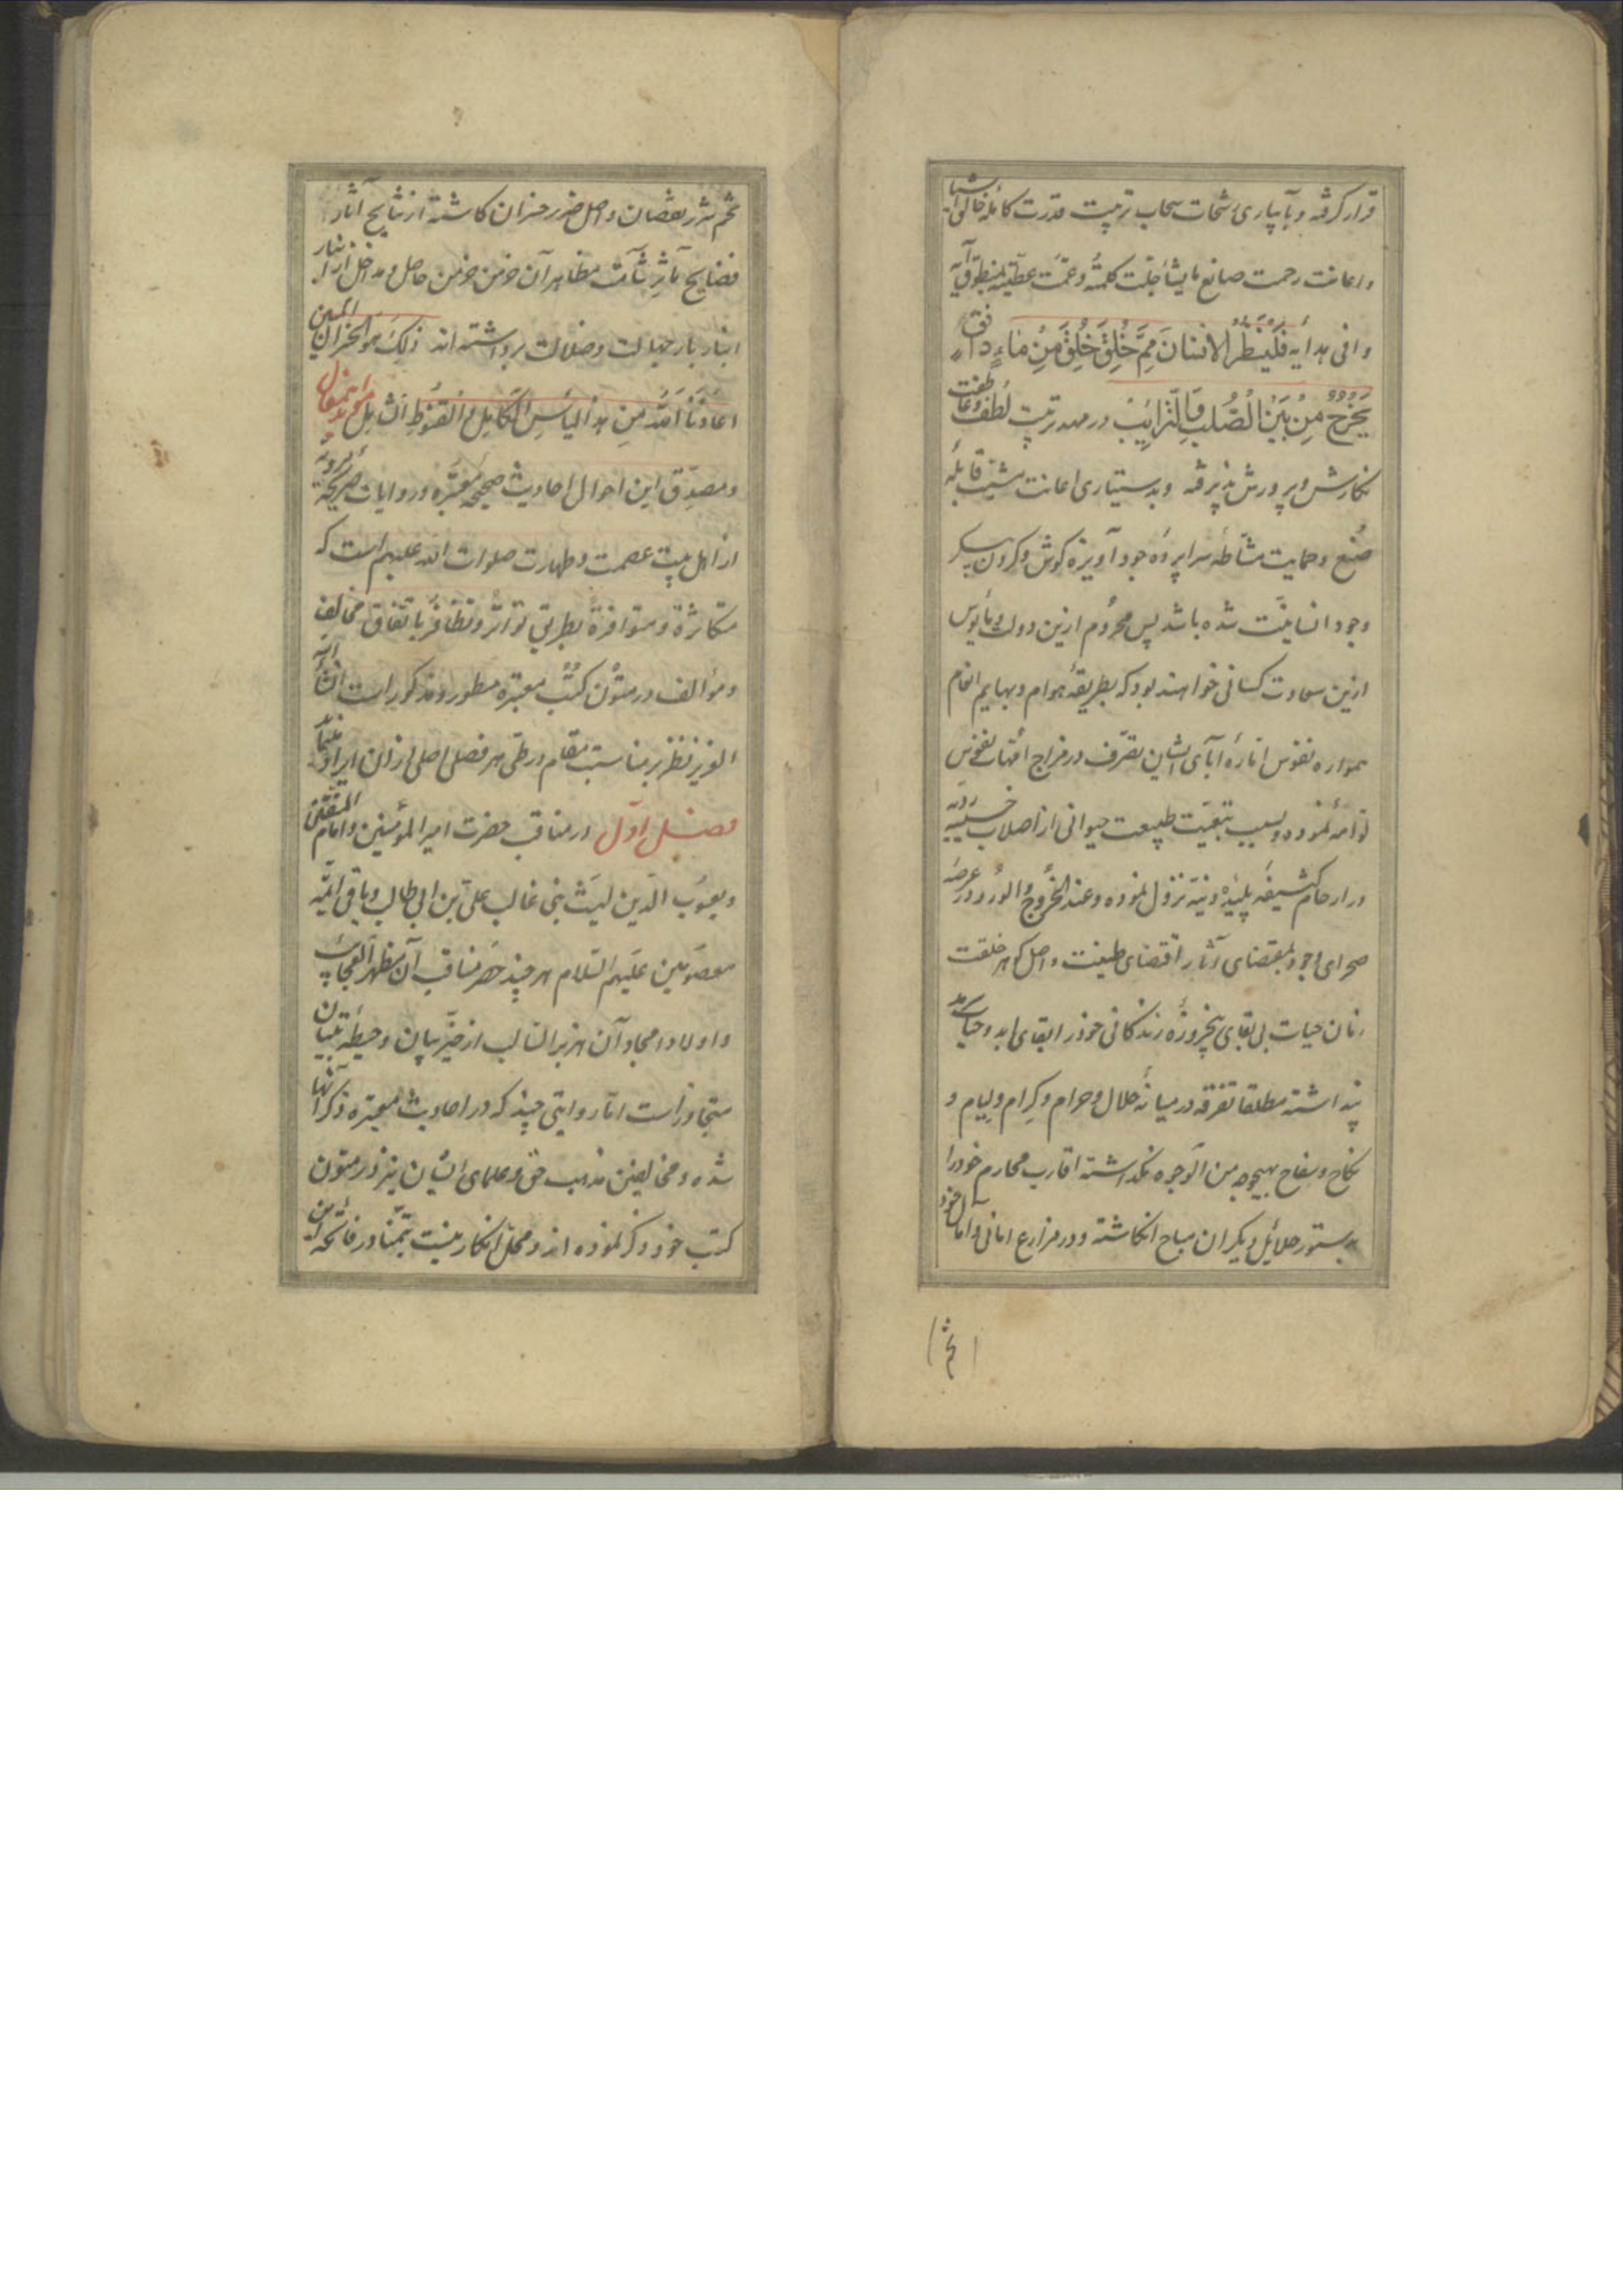 قرار گرفته و بآبیاری رشحات سحاب تربیت قدرت کامله خالق اشیا
و اعانت رحمت صانع مایشا جلّت کلمتُه و عمّت عطیّته بمنطوق آیه
وافی هدایه فَلْیَنْظُرِ الْاِنْسَانُ مِمَّ خُلِقَ خُلِقَ مِنْ مَاءٍ دَافِقٍ
یَخْرُجُ مِنْ بَیْنِ الصُّلْبِ وَالتَّرَائِبِ در مهد تربیت لُطف و عاطفت
نگارش و پرورش پذیرفته و بدستیاری اعانت مشیت قابله
صُنع و حمایت مشّاطه سراپرده جود آویزه کوش و کردن پیکر
وجود انسانیّت شده باشد پس محرُوم ازین دولت و مأیوس
ازین سعادت کسانی خواهند بود که بطریقهٔ هوام و بهایم انعام
همواره نفوس امّارهٔ آبای ایشان تصرّف در مزاج امّهات نفوس
لوّامه نموده و بسبب تبعیّت طبیعت حیوانی از اصلاب خسیسه ردیه
در ارحام کثیفه پلیده دنیّه نزول نموده و عند الخُروج و الوُرود در عرصه
صحرای وجود بمقتضای آثار اقتضای طینت و اصل کوهر خلقت
زمان حیات بی بقای پنجروزه زندکانی خود را بقای ابد و حیات سرمد
پنداشته مطلقا تفرقه در میانهٔ حلال و حرام و کِرام و لِیام و
نکاح و سفاح بهیچوجه من الوجوه نکذاشته اقارب محارم خود را
بدستور حلائل دیکران مباح انکاشته و در مزارع امانی و آمال خود
(تخم)
تخم شرر نقصان و اصل ضرر خسران کاشته از نتایج آثار
فضایح مآثر شآمت مظاهر آن خرمن خرمن حاصل و مداخل ادبار
انبار بار جهالت و ضلالت برداشته اند ذلِکَ هُوَ الخُسرانُ المُبین
اَعَاذَنَا اللّٰهُ مِن هذا الیَأسِ الکَامِلِ وَ القُنُوطِ الشّامِلِ
و مصدّق این احوال احادیث صحیحه معتبره و روایات صریحه مرویّه
از اهل بیت عصمت و طهارت صلوات الله علیهم است که
متکاثرةً و متوافرةً بطریق تواتُر و تظافُر باتفاق مخالف
و مؤالف در متُون کُتُب معتبره مسطور و مذکور است ان شاء الله
العزیز نظر بر مناسبت مقام در طی هر فصلی اصلی از آن ایراد
فصل اوّل در مناقب حضرت امیر المؤمنین و امام المتّقین
و یعسُوب الدّین لیث بنی غالب علیّ بن ابی طالب و باقی ائمّه
معصومین علیهم السّلام هر چند حصر مناقب آن مظهر العجائب
و اولاد امجاد آن هزبر السالب از حیّز بیان و حیطهٔ تبیان
متجاوز است اما روایتی چند که در احادیث معتبره ذکر آنها
شده و مخالفین مذهب حق و علمای ایشان نیز در متون
کتب خود ذکر نموده اند و محلّ انکار نیست تیمّنا در فاتحه این